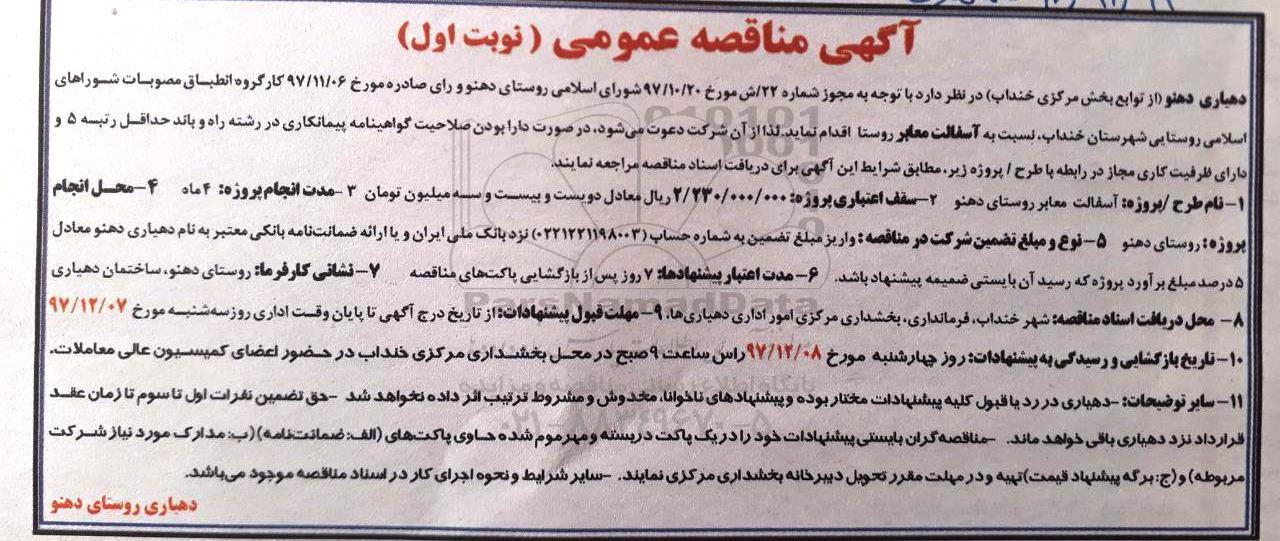 آگهی مناقصه عمومی ( نوبت اول)
دهیاری دهنو (از توابع بخش مرکزی خنداب) در نظر دارد با توجه به مجوز شماره ۲۲/ش مورخ ۹۷/۱۰/۲۰ شورای اسلامی روستای دهنو و رای صادره مورخ ۹۷/۱۱/۰۶ کارگروه انطباق مصوبات شوراهای
اسلامی روستایی شهرستان خنداب، نسبت به آسفالت معابر روستا اقدام نماید. لذا از آن شرکت دعوت می‌شود، در صورت دارا بودن صلاحیت گواهینامه پیمانکاری در رشته راه و باند حداقل رتبه ۵ و
دارای ظرفیت کاری مجاز در رابطه با طرح / پروژه زیر، مطابق شرایط این آگهی برای دریافت اسناد مناقصه مراجعه نمایند.
۱- نام طرح /پروژه: آسفالت معابر روستای دهنو ۲- سقف اعتباری پروژه: ۲/۲۳۰/۰۰۰/۰۰۰ ریال معادل دویست و بیست و سه میلیون تومان ۳ -مدت انجام پروژه: ۴ ماه ۴- محل انجام
پروژه: روستای دهنو ۵- نوع و مبلغ تضمین شرکت در مناقصه : واریز مبلغ تضمین به شماره حساب (۰۲۲۱۲۲۱۱۹۸۰۰۳) نزد بانک ملی ایران و یا ارائه ضمانت‌نامه بانکی معتبر به نام دهیاری دهنو معادل
۵ درصد مبلغ برآورد پروژه که رسید آن بایستی ضمیمه پیشنهاد باشد. ۶- مدت اعتبار پیشنهادها: ۷ روز پس از بازگشایی پاکت‌های مناقصه ۷- نشانی کارفرما: روستای دهنو، ساختمان دهیاری
۸- محل دریافت اسناد مناقصه: شهر خنداب، فرمانداری، بخشداری مرکزی امور اداری دهیاری‌ها، ۹- مهلت قبول پیشنهادات: از تاریخ درج آگهی تا پایان وقت اداری روز سه‌شنبه مورخ ۹۷/۱۲/۰۷
۱۰- تاریخ بازگشایی و رسیدگی به پیشنهادات: روز چهارشنبه مورخ ۹۷/۱۲/۰۸ راس ساعت ۹ صبح در محل بخشداری مرکزی خنداب در حضور اعضای کمیسیون عالی معاملات.
۱۱- سایر توضیحات: -دهیاری در رد یا قبول کلیه پیشنهادات مختار بوده و پیشنهادهای ناخوانا، مخدوش و مشروط ترتیب اثر داده نخواهد شد -حق تضمین نفرات اول تا سوم تا زمان عقد
قرارداد نزد دهیاری باقی خواهد ماند. -مناقصه‌گران بایستی پیشنهادات خود را در یک پاکت دربسته و مهرموم شده حاوی پاکت‌های (الف: ضمانت‌نامه) (ب: مدارک مورد نیاز شرکت
مربوطه) و (ج: برگه پیشنهاد قیمت) تهیه و در مهلت مقرر تحویل دبیرخانه بخشداری مرکزی نمایند. -سایر شرایط و نحوه اجرای کار در اسناد مناقصه موجود می‌باشد.
دهیاری روستای دهنو
ParsNamadData
۰۲۱-۸۸۳۴۹۶۷۰-۵